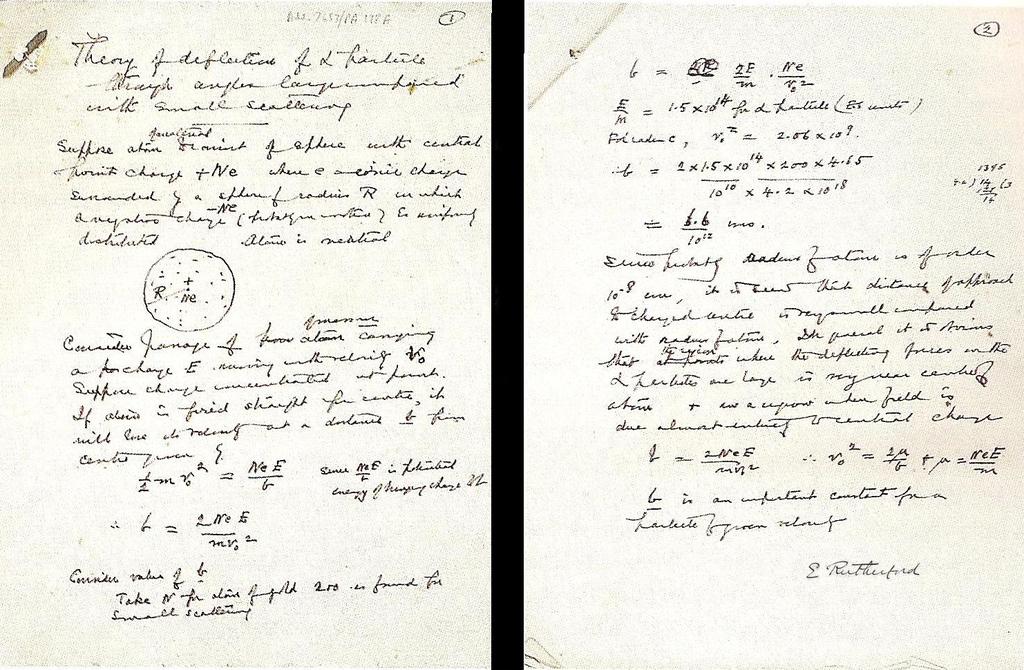 Add. 7653/PA 178A
1
Theory of deflection of α particle
through angles large compared
with small scattering
Suppose atom consist of sphere with central
point charge + Ne where e = charge
surrounded by a sphere of radius R in which
a negative charge -Ne is uniformly
distributed Atom is neutral
R + Ne
Consider passage of from atom carrying
a + charge E moving with velocity v₀
Suppose charge concentrated at point.
If atom is fired straight for centre, it
will lose its velocity at a distance b from
centre given by
½ m v₀² = NeE/b since NeE/b is potential
energy of charge
∴ b = 2NeE/mv₀²
Consider value of b
Take N for atom of gold 200 as found for
small scattering
2
b = 2E/m . Ne/v₀²
E/m = 1.5 × 10¹⁴ for α particle (ES units)
For radium C, v₀ = 2.06 × 10⁹.
∴ b = 2 × 1.5 × 10¹⁴ × 200 × 4.65 / 10¹⁰ × 4.2 × 10¹⁸
= 6.6/10¹² cms.
Since radius of atom is of order
10⁻⁸ cm, it is seen that distance of approach
to charged centre is very small compared
with radius of atom. In general it is obvious
that the region where the deflecting forces on the
α particles are large is very near centre of
atom + in a region when field is
due almost entirely to central charge
b = 2NeE/mv₀² ∴ v₀² = 2μ/b + μ = NeE/m
b is an important constant for a
particle of given velocity
E Rutherford